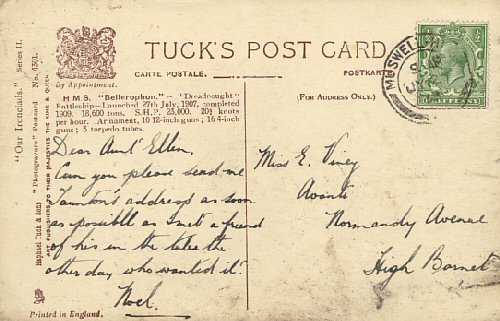 "Our Ironclads." Series II.
"Photogravure" Postcard No. 4301.
Raphael Tuck & Sons
ART PUBLISHERS TO THEIR MAJESTIES THE KING & QUEEN.
By Appointment.
TUCK'S POST CARD
CARTE POSTALE.
POSTKARTE
(FOR ADDRESS ONLY.)
H.M.S. "Bellerophon." – "Dreadnought"
Battleship—Launched 27th July, 1907, completed
1909. 18,600 tons. S.H.P. 23,000. 20¾ knots
per hour. Armament, 10 12-inch guns; 16 4-inch
guns; 3 torpedo tubes.
MUSWELL
HALFPENNY
Dear Aunt Ellen,
Can you please send me
Taunton's address as soon
as possible as I met a friend
of his in the tube the
other day who wanted it.
Noel.
Miss E. Viney
Avanti
Normandy Avenue
High Barnet
Printed in England.